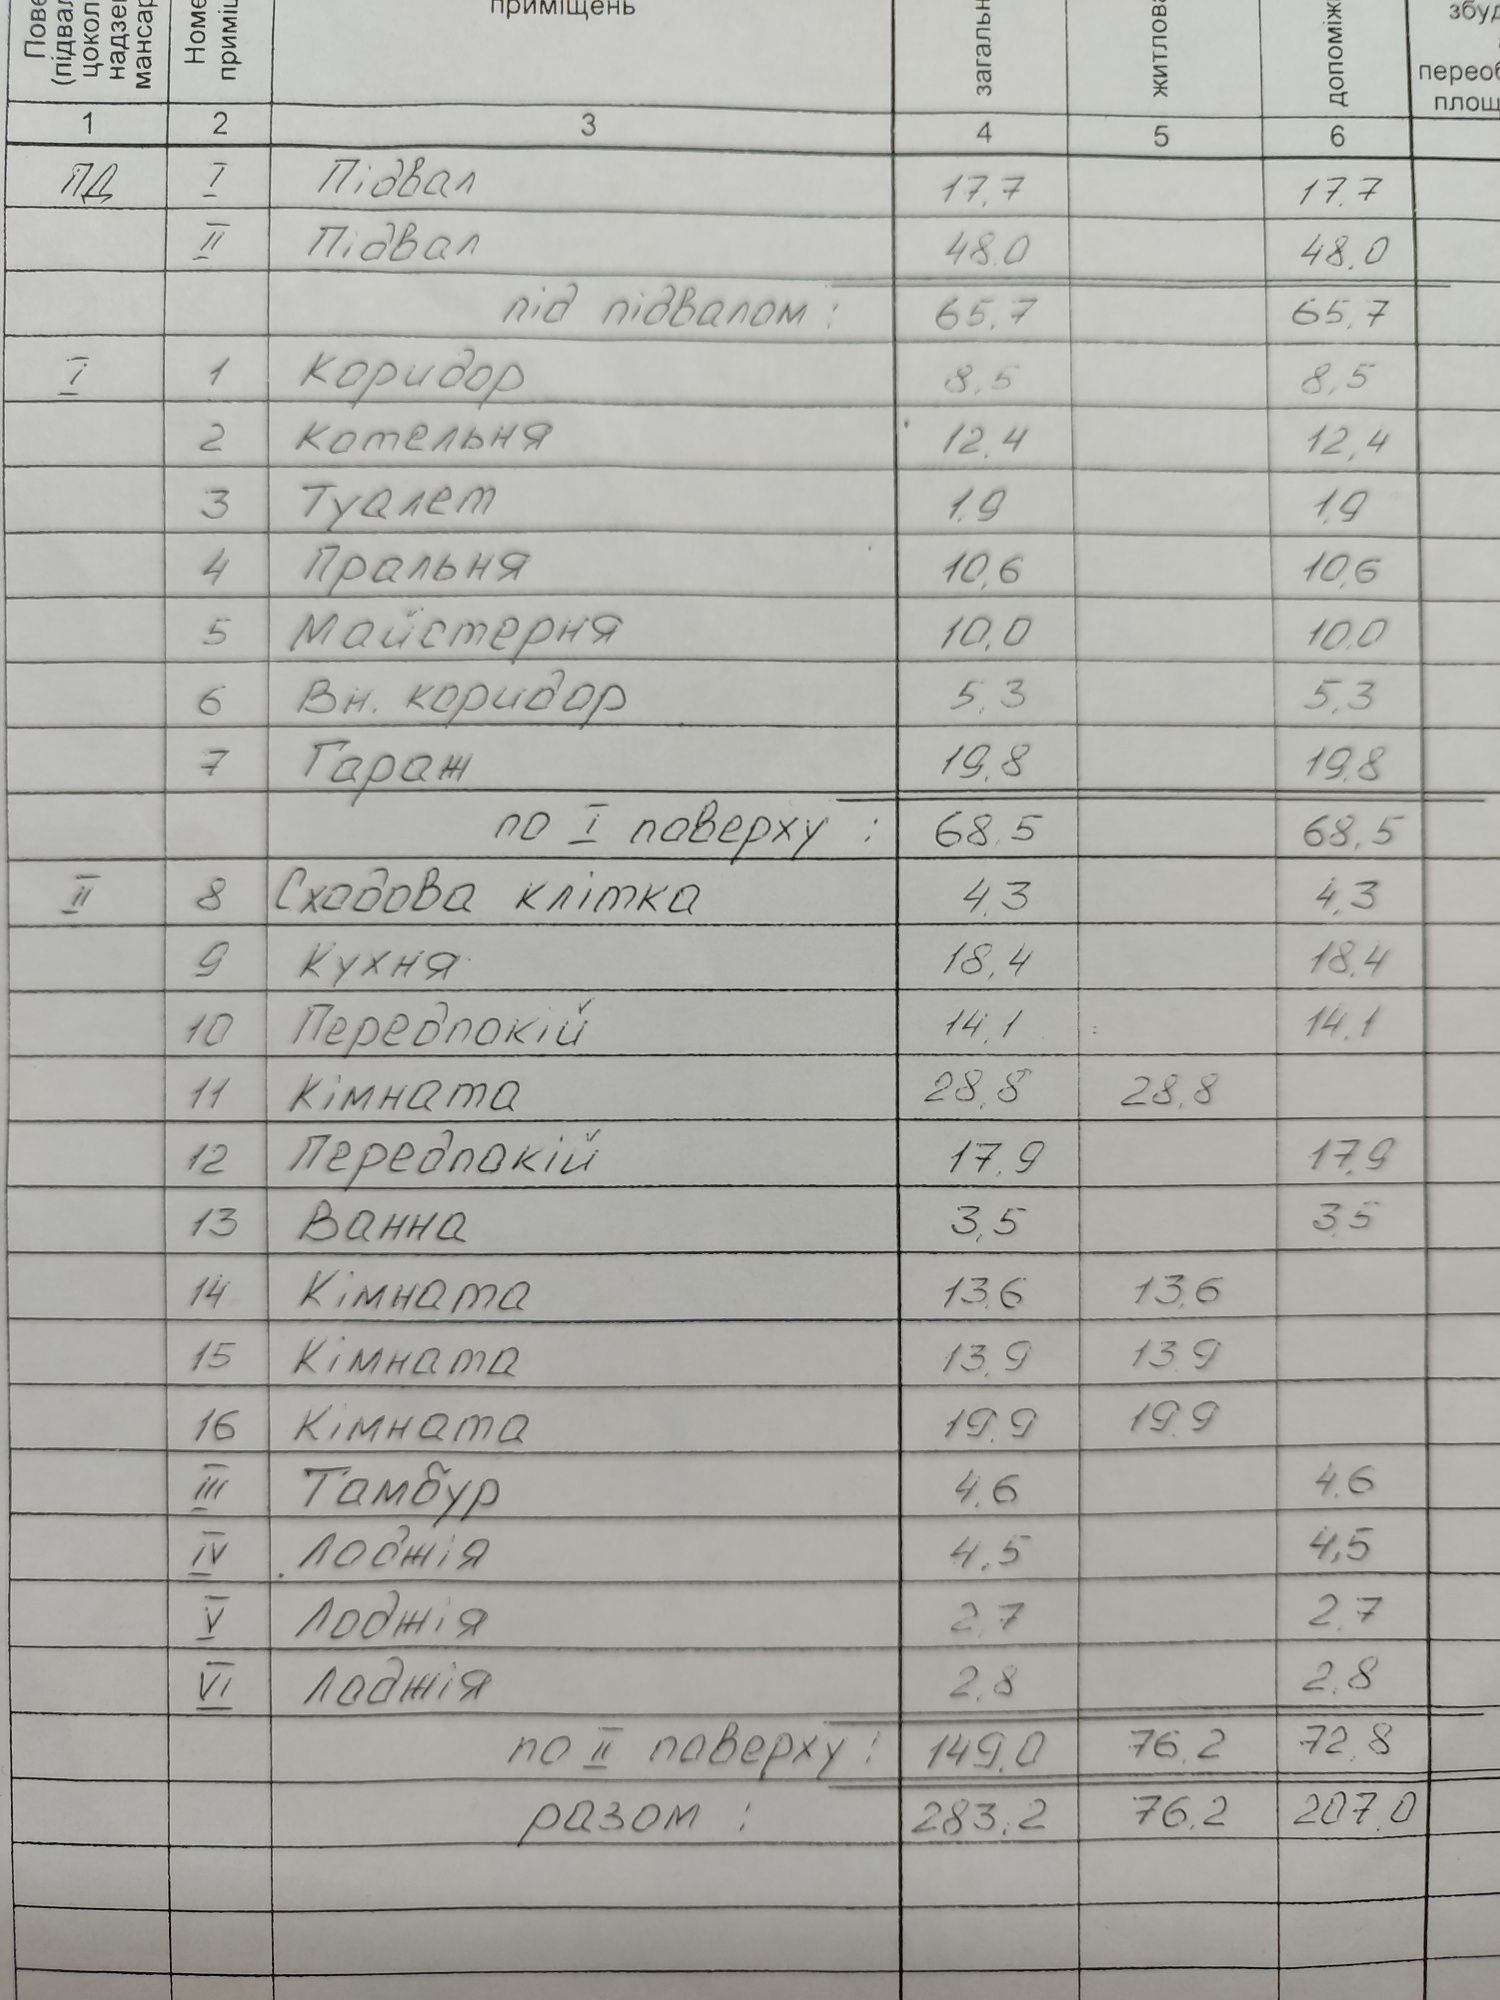 Пове
(підвал
цокол
надзе
мансар
Номе
приміщ
приміщень
загальн
житлова
допоміж
збуд
переоб
площ
1 2 3 4 5 6
ПД I Підвал 17,7 17,7
II Підвал 48.0 48,0
під підвалом : 65,7 65,7
I 1 Коридор 8,5 8,5
2 Котельня 12,4 12,4
3 Туалет 1,9 1,9
4 Пральня 10,6 10,6
5 Майстерня 10,0 10,0
6 Вн. коридор 5,3 5,3
7 Гараж 19,8 19,8
по I поверху : 68,5 68,5
II 8 Сходова клітка 4,3 4,3
9 Кухня 18,4 18,4
10 Передпокій 14,1 14,1
11 Кімната 28,8 28,8
12 Передпокій 17,9 17,9
13 Ванна 3,5 3,5
14 Кімната 13,6 13,6
15 Кімната 13,9 13,9
16 Кімната 19,9 19,9
III Тамбур 4,6 4,6
IV Лоджія 4,5 4,5
V Лоджія 2,7 2,7
VI Лоджія 2,8 2,8
по II поверху : 149,0 76,2 72,8
разом : 283,2 76,2 207,0